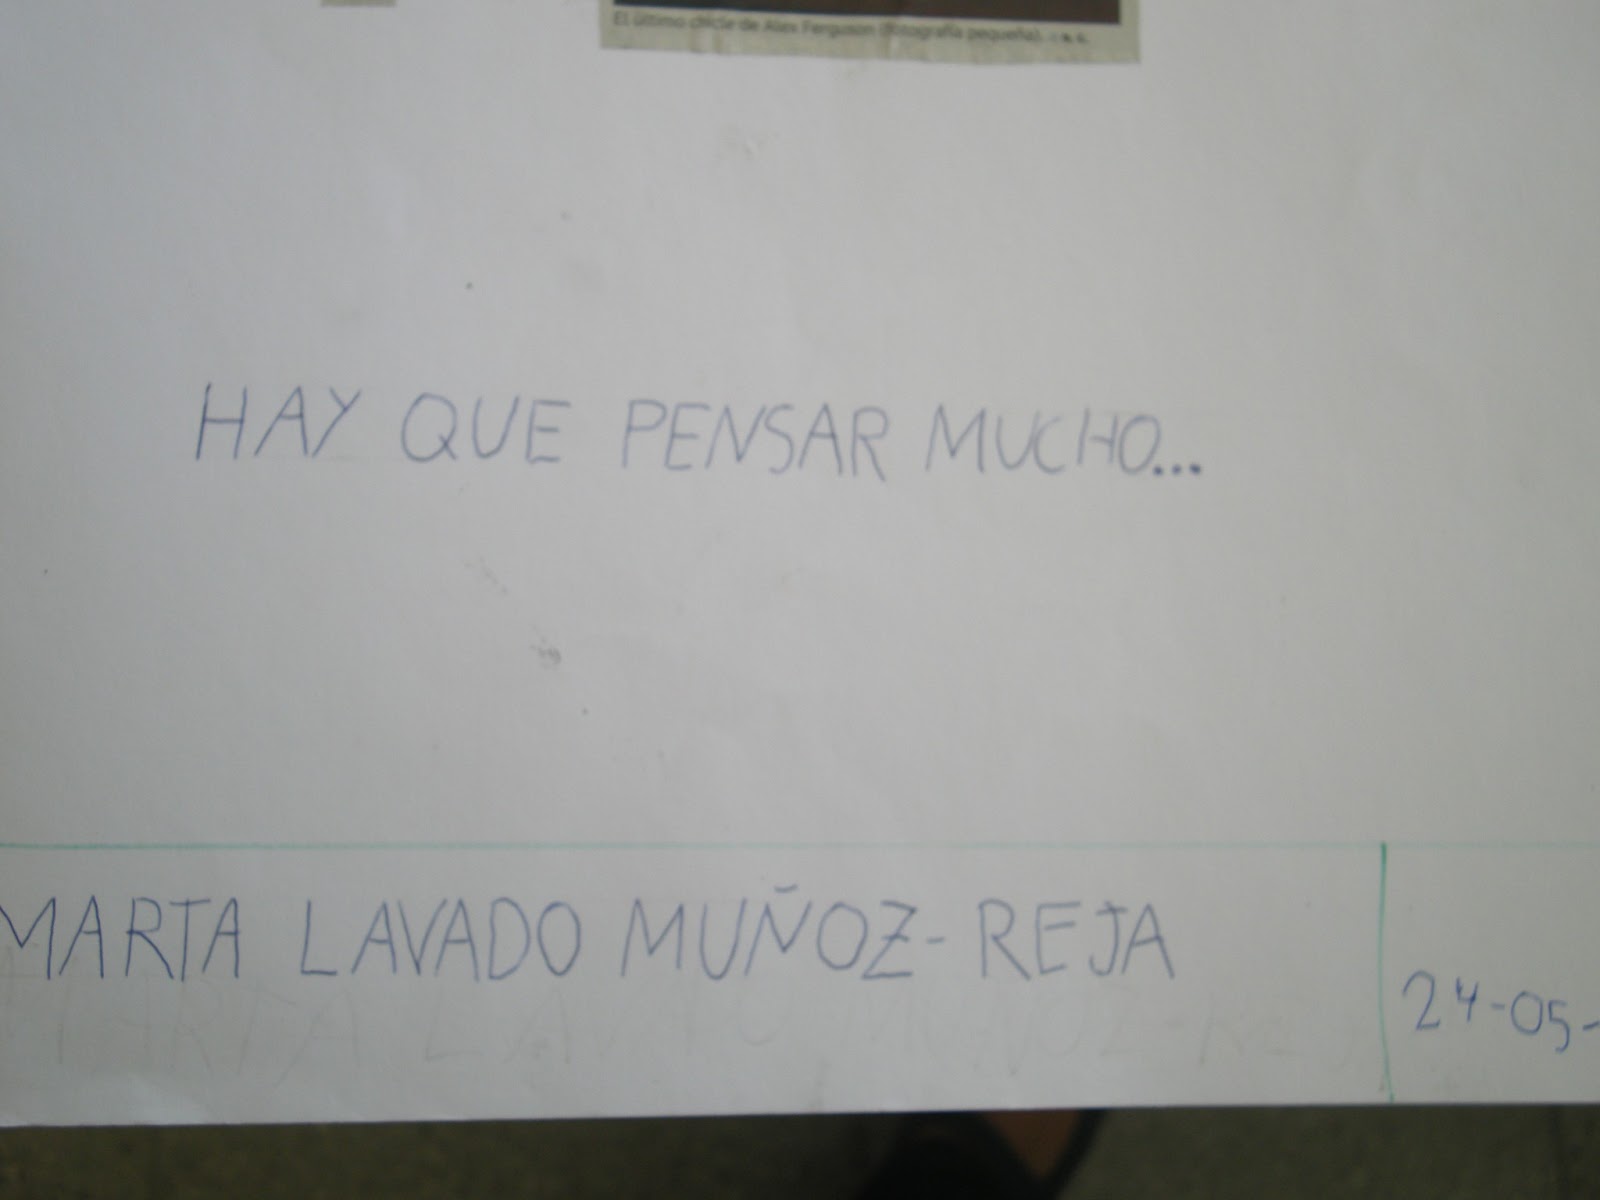 El último chicle de Alex Ferguson (fotografía pequeña).
HAY QUE PENSAR MUCHO...
MARTA LAVADO MUÑOZ-REJA
24-05-